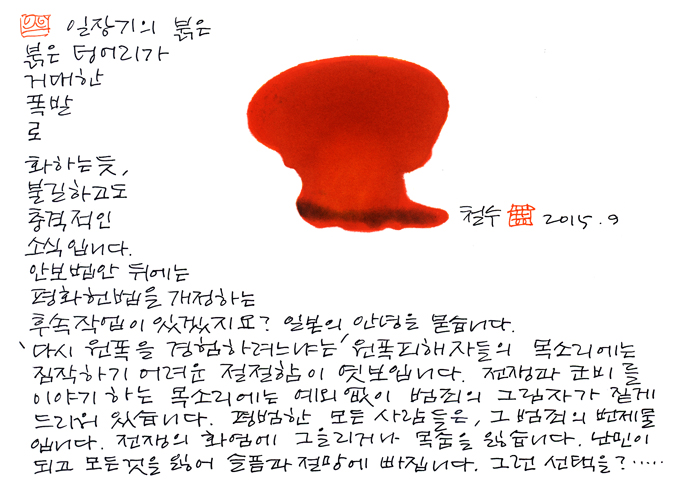 일장기의 붉은
붉은 덩어리가
거대한
폭발
로
화하는 듯,
불길하고도
충격적인
소식입니다.
안보법안 뒤에는
평화헌법을 개정하는
후속작업이 있겠지요? 일본의 안녕을 묻습니다.
'다시 원폭을 경험하려느냐는' 원폭피해자들의 목소리에는
짐작하기 어려운 절절함이 엿보입니다. 전쟁과 군비를
이야기 하는 목소리에는 예외 없이 범죄의 그림자가 짙게
드리워 있습니다. 평범한 모든 사람들은, 그 범죄의 번제물
입니다. 전쟁의 화염에 그을리거나 목숨을 잃습니다. 난민이
되고 모든것을 잃어 슬픔과 절망에 빠집니다. 그런 선택을?.....
철수 2015.9